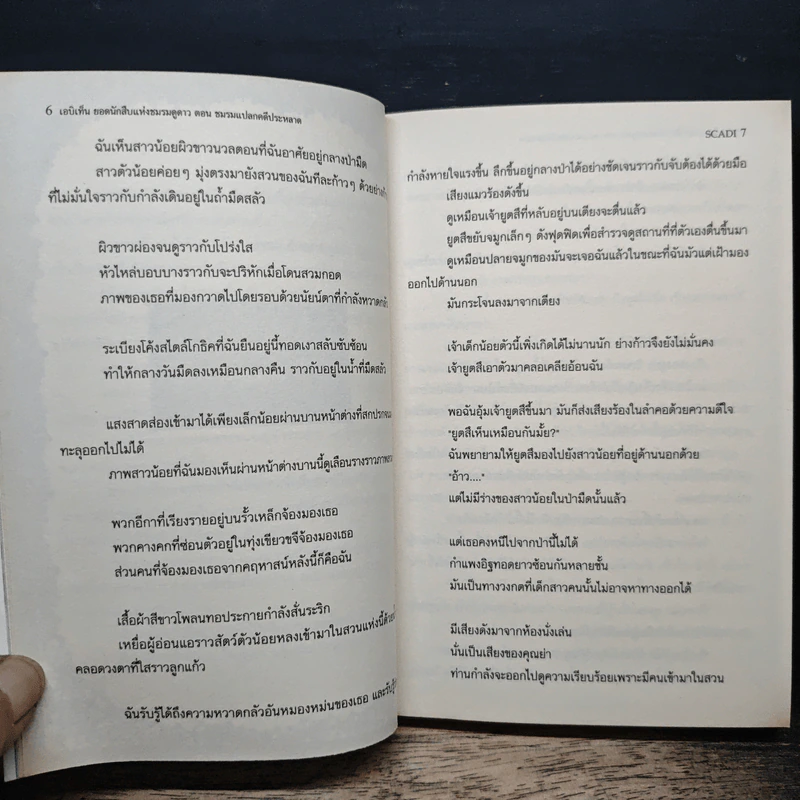 6 เอบิเท็น ยอดนักสืบแห่งชมรมดูดาว ตอน ชมรมแปลกคดีประหลาด
ฉันเห็นสาวน้อยผิวขาวนวลตอนที่ฉันอาศัยอยู่กลางป่ามืด
สาวตัวน้อยค่อยๆ มุ่งตรงมายังสวนของฉันทีละก้าวๆ ด้วยย่าง
ที่ไม่มั่นใจราวกับกำลังเดินอยู่ในถ้ำมืดสลัว
ผิวขาวผ่องจนดูราวกับโปร่งใส
หัวไหล่บอบบางราวกับจะปริหักเมื่อโดนสวมกอด
ภาพของเธอที่มองกวาดไปโดยรอบด้วยนัยน์ตาที่กำลังหวาดกลัว
ระเบียงโค้งสไตล์โกธิคที่ฉันยืนอยู่นี้ทอดเงาสลับซับซ้อน
ทำให้กลางวันมืดลงเหมือนกลางคืน ราวกับอยู่ในน้ำที่มืดสลัว
แสงสาดส่องเข้ามาได้เพียงเล็กน้อยผ่านบานหน้าต่างที่สกปรกจน
ทะลุออกไปไม่ได้
ภาพสาวน้อยที่ฉันมองเห็นผ่านหน้าต่างบานนี้ดูเลือนรางราวภาพ
พวกอีกาที่เรียงรายอยู่บนรั้วเหล็กจ้องมองเธอ
พวกคางคกที่ซ่อนตัวอยู่ในทุ่งเขียวขจีจ้องมองเธอ
ส่วนคนที่จ้องมองเธอจากคฤหาสน์หลังนี้ก็คือฉัน
เสื้อผ้าสีขาวโพลนทอประกายกำลังสั่นระริก
เหยื่อผู้อ่อนแอราวสัตว์ตัวน้อยหลงเข้ามาในสวนแห่งนี้ด้วย
คลอดวงตาที่ใสราวลูกแก้ว
ฉันรับรู้ได้ถึงความหวาดกลัวอันหมองหม่นของเธอ และรับรู้
SCADI 7
กำลังหายใจแรงขึ้น ลึกขึ้นอยู่กลางป่าได้อย่างชัดเจนราวกับจับต้องได้ด้วยมือ
เสียงแมวร้องดังขึ้น
ดูเหมือนเจ้ายูตสึที่หลับอยู่บนเตียงจะตื่นแล้ว
ยูตสึขยับจมูกเล็กๆ ดังฟุดฟิดเพื่อสำรวจดูสถานที่ที่ตัวเองตื่นขึ้นมา
ดูเหมือนปลายจมูกของมันจะเจอฉันแล้วในขณะที่ฉันมัวแต่เฝ้ามอง
ออกไปด้านนอก
มันกระโจนลงมาจากเตียง
เจ้าเด็กน้อยตัวนี้เพิ่งเกิดได้ไม่นานนัก ย่างก้าวจึงยังไม่มั่นคง
เจ้ายูตสึเอาตัวมาคลอเคลียอ้อนฉัน
พอฉันอุ้มเจ้ายูตสึขึ้นมา มันก็ส่งเสียงร้องในลำคอด้วยความดีใจ
"ยูตสึเห็นเหมือนกันมั้ย?"
ฉันพยายามให้ยูตสึมองไปยังสาวน้อยที่อยู่ด้านนอกด้วย
"อ้าว...."
แต่ไม่มีร่างของสาวน้อยในป่ามืดนั้นแล้ว
แต่เธอคงหนีไปจากป่านี้ไม่ได้
กำแพงอิฐทอดยาวซ้อนกันหลายชั้น
มันเป็นทางวงกตที่เด็กสาวคนนั้นไม่อาจหาทางออกได้
มีเสียงดังมาจากห้องนั่งเล่น
นั่นเป็นเสียงของคุณย่า
ท่านกำลังจะออกไปดูความเรียบร้อยเพราะมีคนเข้ามาในสวน